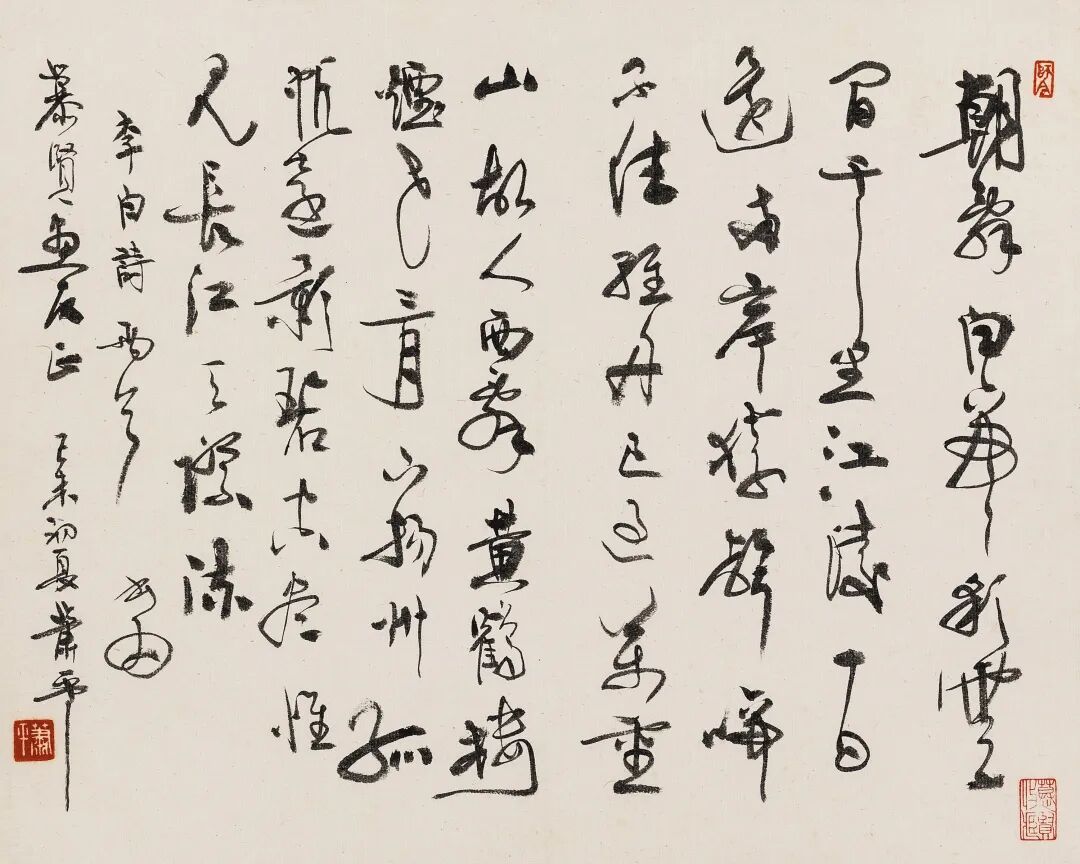 朝辭白帝彩雲
間千里江陵一日
還兩岸猿聲啼
不住輕舟已過萬重
山故人西辭黃鶴樓
煙花三月下揚州孤
帆遠影碧空盡惟
見長江天際流
李白詩兩首書為
慕賢畫友正己未初夏蕭平
蕭平